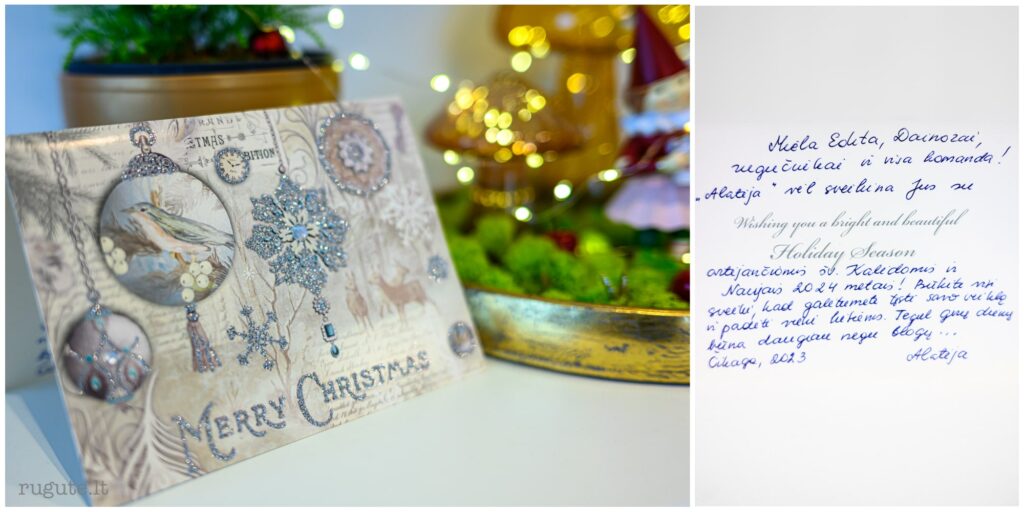 TMAS
BITION
MERRY CHRISTMAS
rugute.lt
Miela Edita, Dainorai,
rugučiukai ir visa komanda!
„Alatėja“ vėl sveikina Jus su
Wishing you a bright and beautiful
Holiday Season
artėjančiomis šv. Kalėdomis ir
Naujais 2024 metais! Būkite visi
sveiki, kad galėtumėte tęsti savo veiklą
ir padėti vieni kitiems. Tegul gerų dienų
būna daugiau negu blogų...
Čikaga, 2023 Alatėja